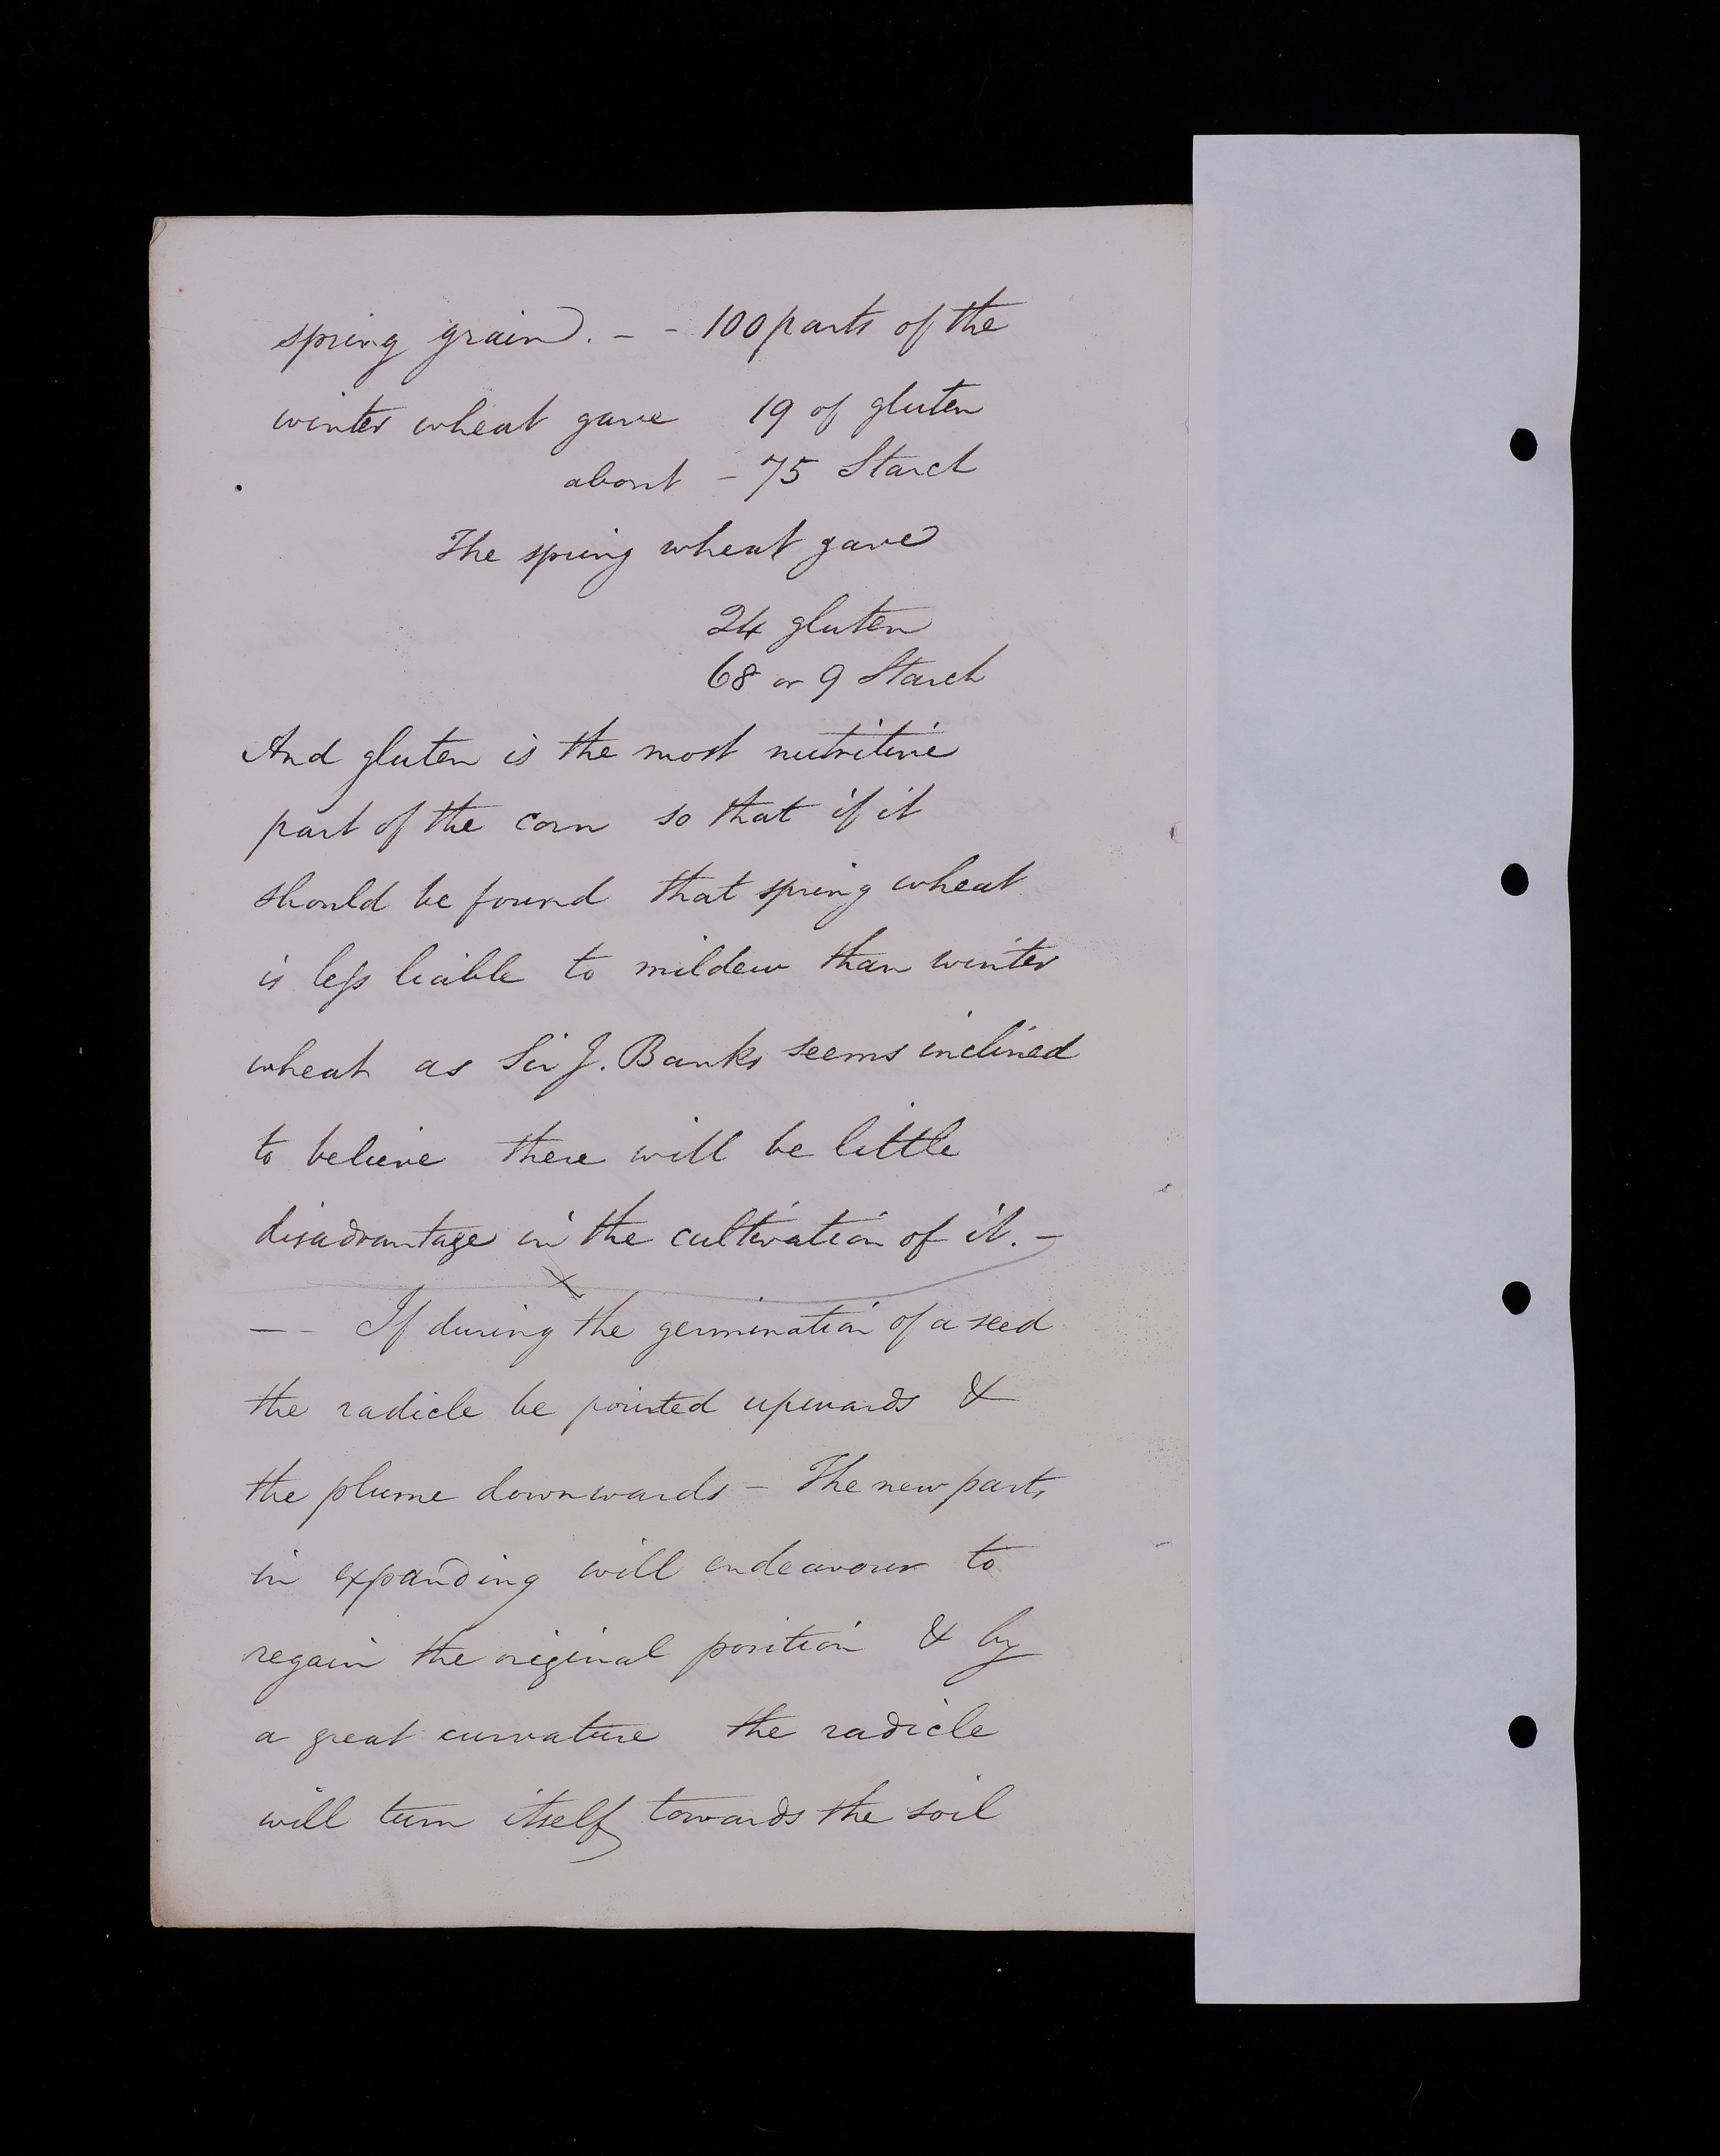 spring grain. - - 100 parts of the
winter wheat gave 19 of gluten
about - 75 Starch
The spring wheat gave
24 gluten
68 or 9 Starch
And gluten is the most nutritive
part of the corn so that if it
should be found that spring wheat
is less liable to mildew than winter
wheat as Sir J. Banks seems inclined
to believe there will be little
disadvantage in the cultivation of it. -
- - If during the germination of a seed
the radicle be pointed upwards &
the plume downwards - The new parts
in expanding will endeavour to
regain the original position & by
a great curvature the radicle
will turn itself towards the soil